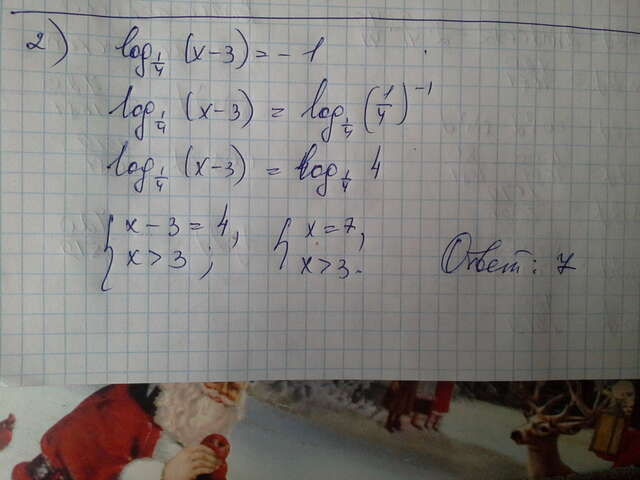 2) log_{1/4} (x-3) = -1
log_{1/4} (x-3) = log_{1/4} (1/4)^{-1}
log_{1/4} (x-3) = log_{1/4} 4
{ x-3=4, { x=7,
x>3 ; x>3. Ответ: 7